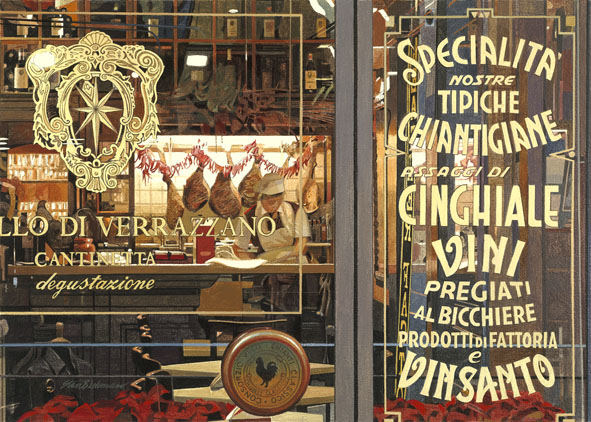 LLO DI VERRAZZANO
CANTINETTA
degustazione
CLASSICO
CONSORZIO
SPECIALITA'
NOSTRE
TIPICHE
CHIANTIGIANE
ASSAGGI DI
CINGHIALE
VINI
PREGIATI
AL BICCHIERE
PRODOTTI DI FATTORIA
e
VINSANTO